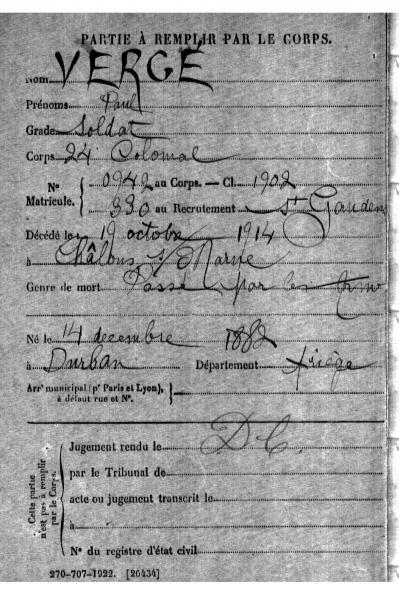 PARTIE À REMPLIR PAR LE CORPS.
Nom VERGÉ
Prénoms Paul
Grade Soldat
Corps 24 Colonial
N° Matricule. { 0942 au Corps. — Cl. 1902
330 au Recrutement St Gaudens
Décédé le 19 octobre 1914
à Châlons s/ Marne
Genre de mort Passé par les Arm
Né le 14 decembre 1882
à Durban Département Ariège
Arrt municipal (pr Paris et Lyon), à défaut rue et N°. }
Cette partie n'est pas à remplir par le Corps.
D C.
Jugement rendu le
par le Tribunal de
acte ou jugement transcrit le
à
N° du registre d'état civil
270-707-1922. [26434]